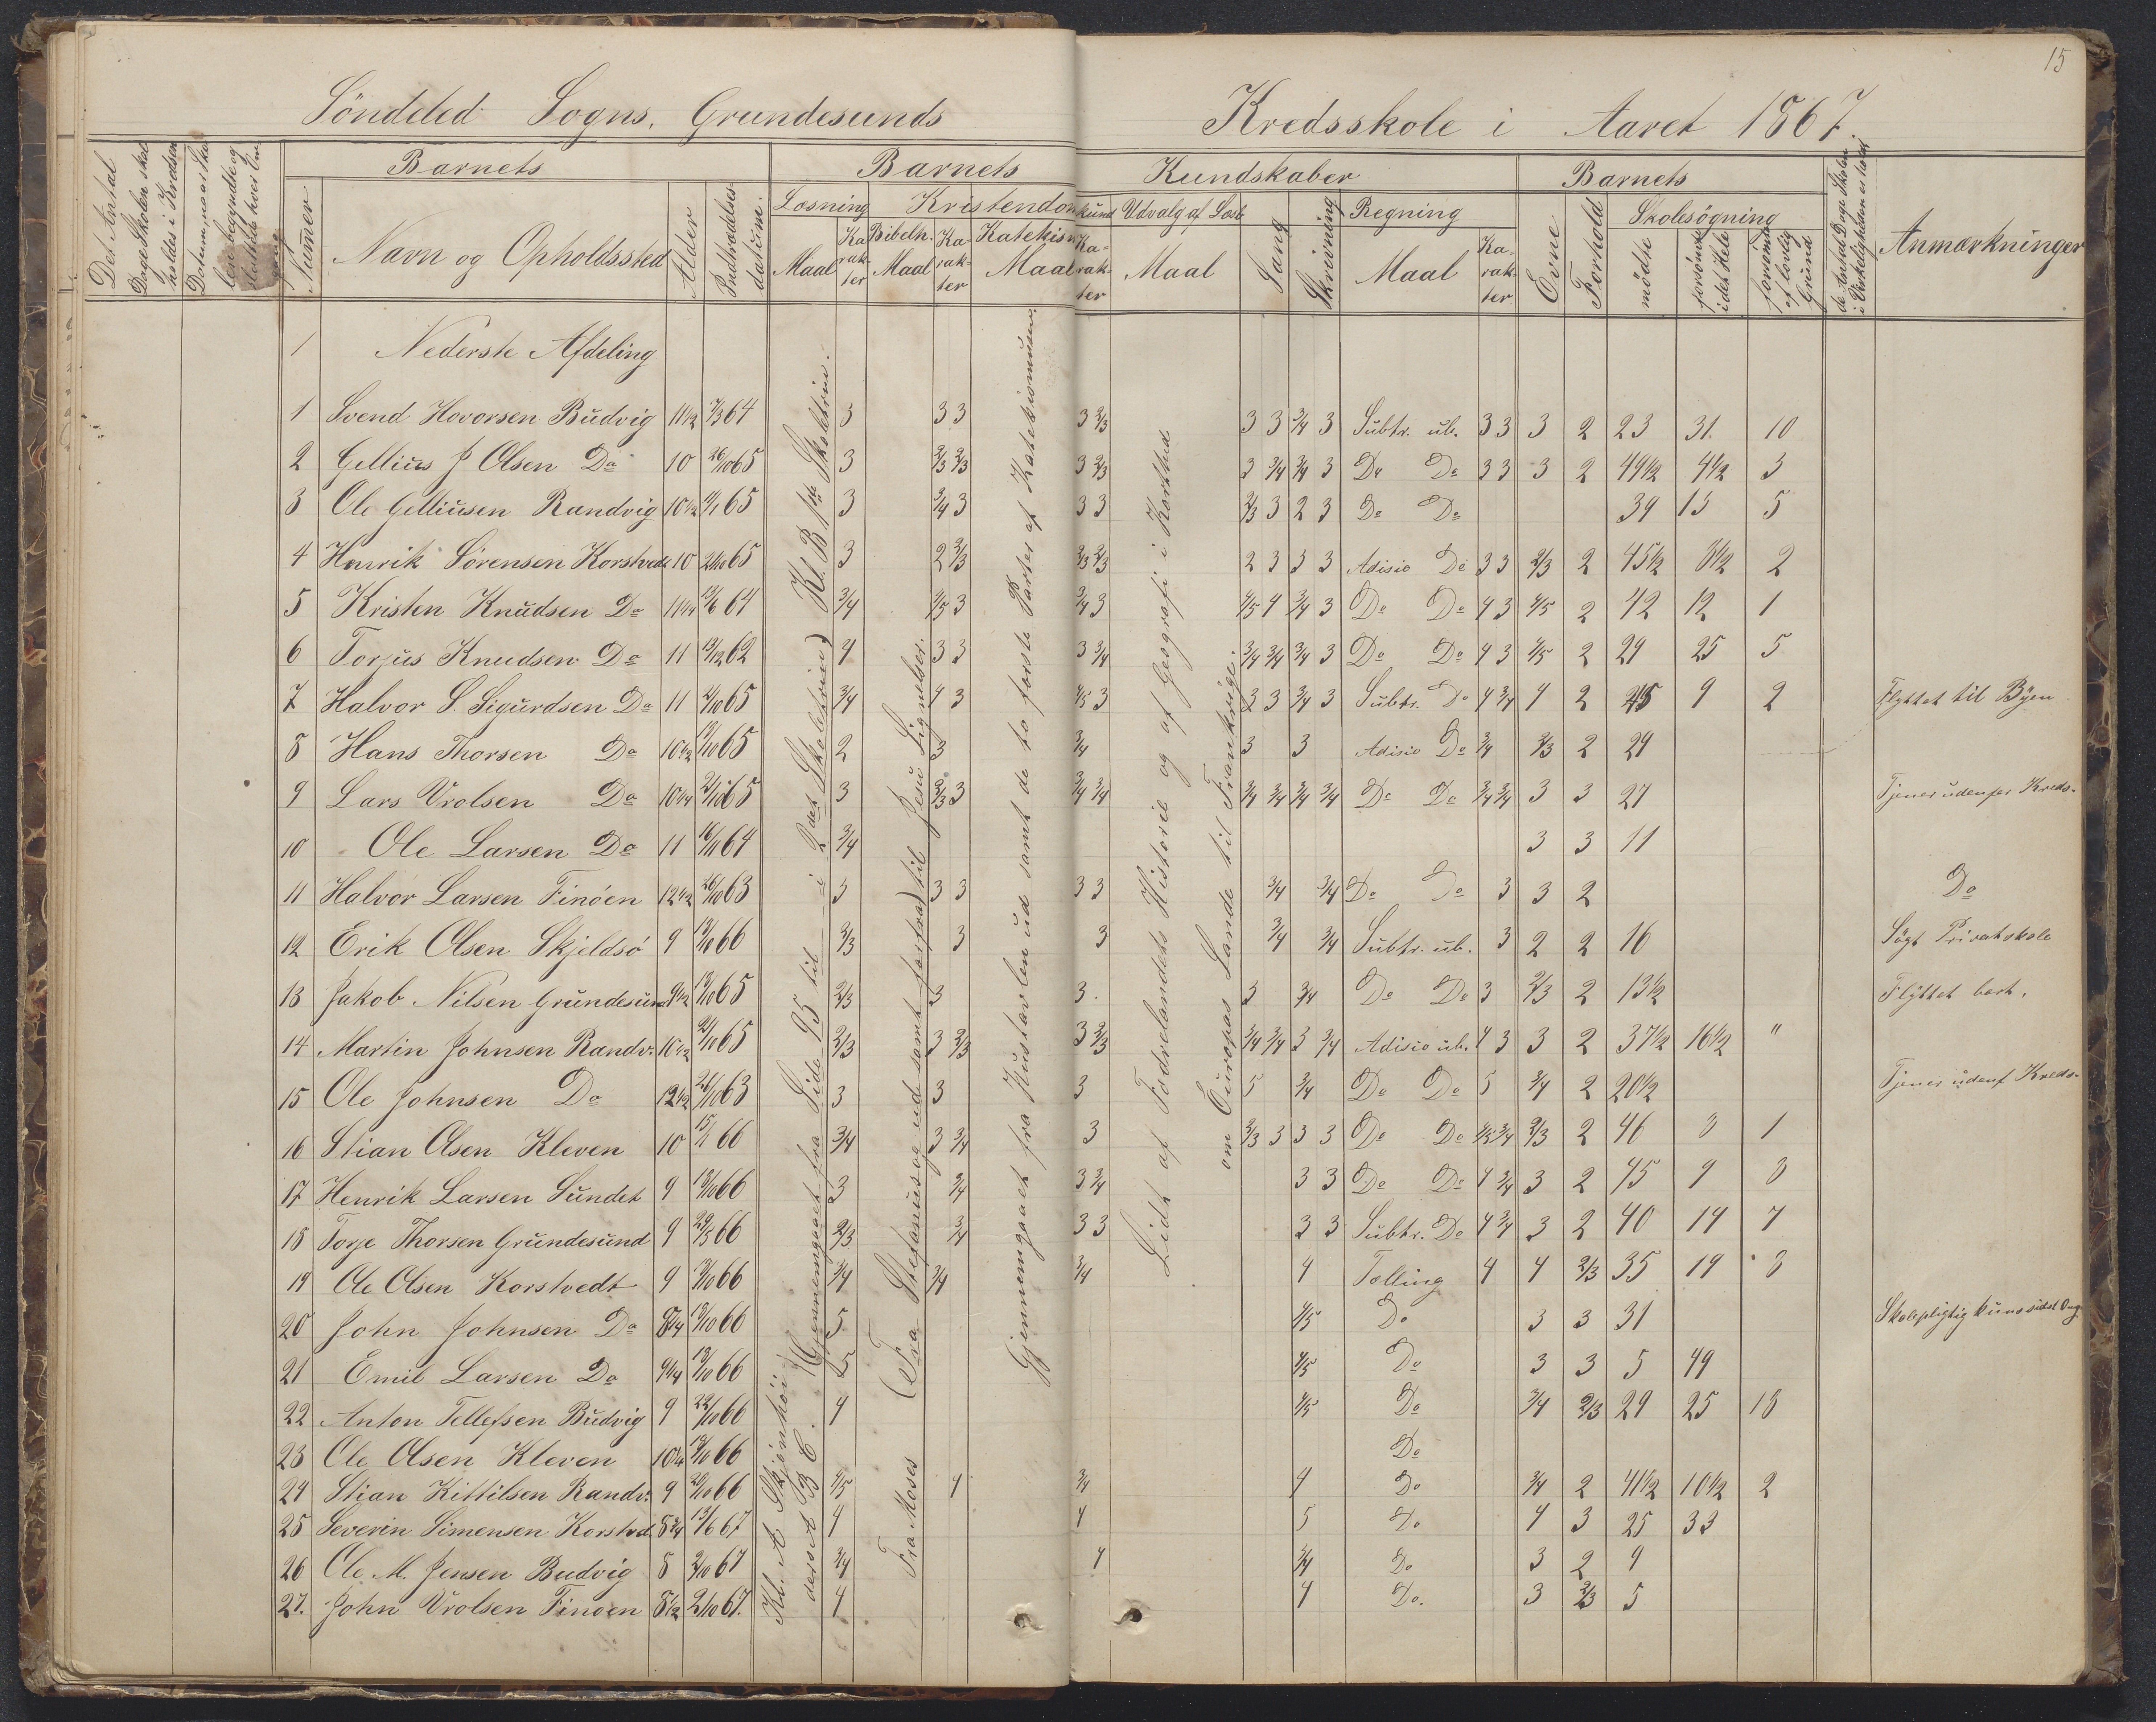 15
Söndeled Sogns. Grundesunds Kredsskole i Aaret 1867.
Det Antal Dage Skolen skal holdes i Kredsen
Datum, naar Skolen begyndte og
Barnets
Numer
Navn og Opholdssted
Alder
Indtrædelses datum.
Barnets Kundskaber
Læsning
Maal
Karakter
Kristendomskund
Bibelh.
Maal
Karakter
Katekism
Maal
Karakter
Udvalg af Læseb
Maal
Sang
Skrivning
Regning
Maal
Karakter
Barnets
Evne
Forhold
Skolesögning
mödte
forsömte i det Hele
forsömte af lovlig Grund
de Antal Dage Skolen i Virkeligheden er holdt
Anmærkninger
1 Nederste Afdeling
1 Svend Hovorsen Budvig 11 1/2 7/3 64 3 3 3 3 2/3 3 3 3/4 3 Subtr. ub. 3 3 3 2 23 31. 10
2 Gellius J Olsen Do 10 26/10 65 3 2/3 2/3 3 2/3 3 3/4 3/4 3 Do Do 3 3 3 2 49 1/2 4 1/2 3
3 Ole Gelliusen Randvig 10 1/2 11/1 65 3 3/4 3 3 3 2/3 3 2 3 Do Do 39 13 5
4 Henrik Sörensen Korstvedt 10 2/10 65 3 2 2/3 2/3 2/3 2 3 3 3 Adisio Do 3 3 2/3 2 45 1/2 8 1/2 2
5 Kristen Knudsen Do 11 1/4 13/6 64 3/4 4/5 3 3/4 3 4/5 4 3/4 3 Do Do 4 3 4/5 2 42 12 1
6 Torjus Knudsen Do 11 13/12 62 4 3 3 3 3/4 3/4 3/4 3/4 3 Do Do 4 3 4/5 2 29 25 5
7 Halvor S. Sigurdsen Do 11 2/10 65 3/4 4 3 4/5 3 3 3 3/4 3 Subtr. Do 4 3/4 4 2 45 9 2 Flyttet til Byen
8 Hans Thorsen Do 10 1/2 12/10 65 2 3 3/4 3 3 Adisio Do 3/4 2/3 2 29
9 Lars Vrolsen Do 10 1/4 2/10 65 3 2/3 3 3/4 3/4 3/4 3/4 3/4 3/4 Do Do 3/4 3/4 3 3 27 Tjener udenfor Kreds.
10 Ole Larsen Do 11 16/11 64 3/4 3 3 11
11 Halvor Larsen Finöen 12 1/2 26/10 63 3 3 3 3 3 3/4 3/4 Do Do 3 3 2 Do
12 Erik Olsen Skjeldsö 9 12/10 66 2/3 3 3 3/4 3/4 Subtr. ub. 3 2 2 16 Sögt Privatskole
13 Jakob Nilsen Grundesund 9 1/2 12/10 65 2/3 3 3. 3 3/4 Do Do 3 2/3 2 13 1/2 Flyttet bort.
14 Martin Johnsen Randv. 10 1/2 21/10 65 2/3 3 2/3 3 2/3 3/4 3/4 3 3/4 Adisio ub. 4 3 3 2 37 1/2 16 1/2 "
15 Ole Johnsen Do 12 1/2 26/10 63 3 3 3 5 3/4 Do Do 5 3/4 2 20 1/2 Tjener udenf Kreds.
16 Stian Olsen Kleven 10 15/1 66 3/4 3 3/4 3 2/3 3 3 3 Do Do 4/5 3/4 2/3 2 46 8 1
17 Henrik Larsen Sundet 9 12/10 66 3 3/4 3 3/4 3 3 Do Do 4 3/4 3 2 45 9 8
18 Torje Thorsen Grundesund 9 22/3 66 2/3 3/4 3 3 3 3 Subtr. Do 4 3/4 3 2 40 14 7
19 Ole Olsen Korstvedt 9 2/10 66 3/4 3/4 3/4 4 Tælling 4 4 2/3 35 19 8
20 John Johnsen Do 8 3/4 12/10 66 5 4/5 Do 3 3 31 Skolepligtig kuns sidst Omg.
21 Emil Larsen Do 9 1/4 12/10 66 5 4/5 Do 3 3 5 49
22 Anton Tellefsen Budvig 9 22/10 66 4 4/5 Do 3/4 2/3 29 25 18
23 Ole Olsen Kleven 10 1/4 12/10 66 Do
24 Stian Kittilsen Randv. 9 20/10 66 4/5 4 3/4 4 Do 3/4 2 41 1/2 10 1/2 2
25 Severin Simensen Korstvd. 8 3/4 13/6 67 4 4 5 Do 4 3 25 33
26 Ole M. Jensen Budvig 8 2/10 67 3/4 4 3/4 Do 3 2 9
27. John Vrolsen Finöen 8 1/2 2/10 67. 4 4 Do. 3 2/3 5
Kl. A Skjönhöi deres A B C.
(Gjennemgaaet fra Side 95 til i 2det Skoletrin) Kl. B 1ste Skoletrin.
Fra Moses (Fra Stefanus og ud samt forfra) til Jesu Lignelser.
Gjennemgaaet fra Hustavlen ud samt de to förste Parter af Katekismussen
Lidt af Fædrelandets Historie og af Geografi i Korthed
om Europas Lande til Frankrige.